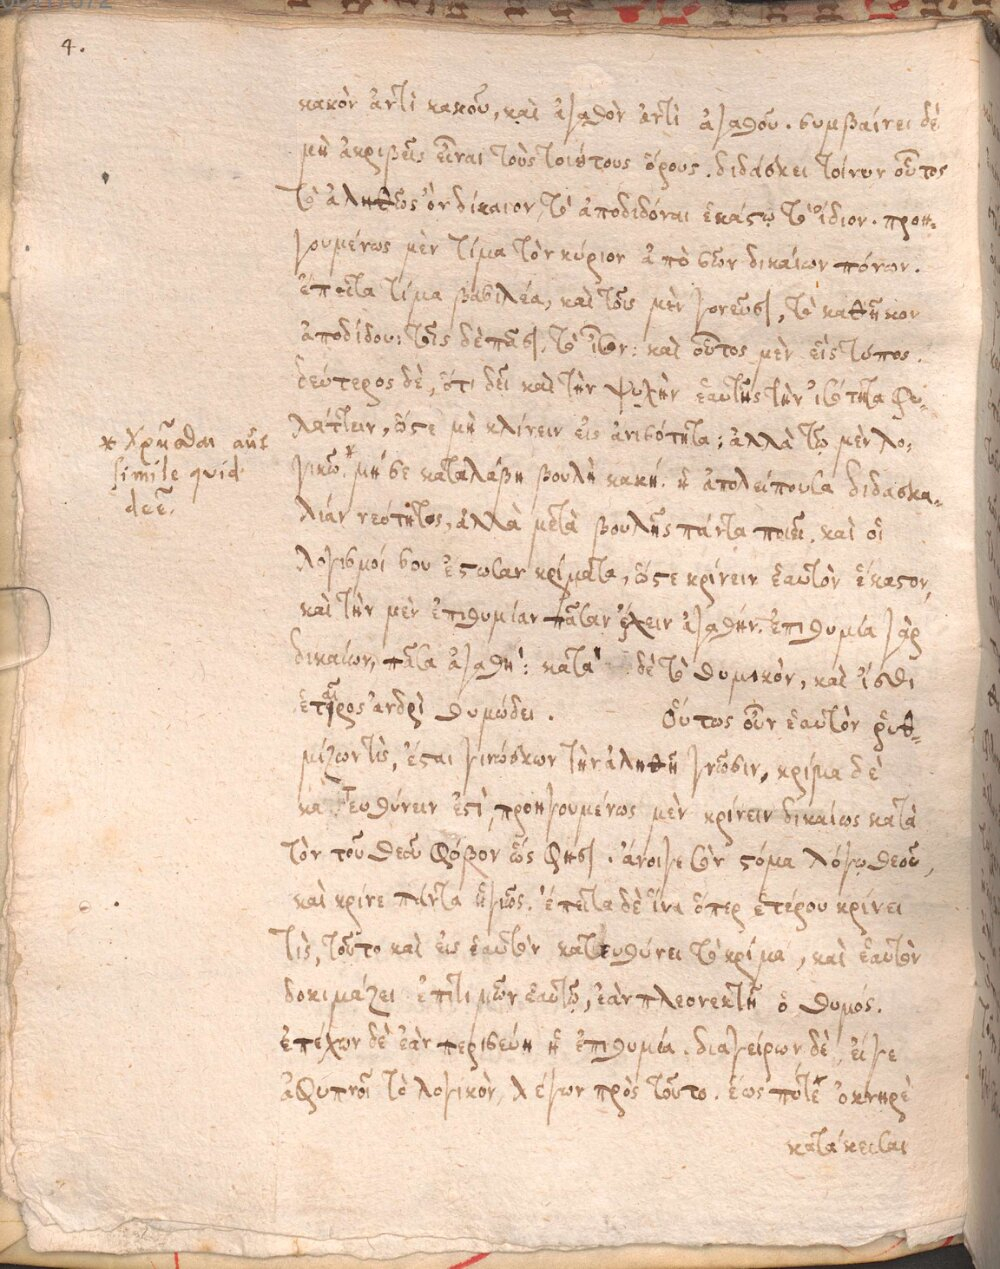 4.
κακὸν ἀντὶ κακοῦ, καὶ ἀγαθὸν ἀντὶ ἀγαθοῦ. συμβαίνει δὲ
μὴ ἀκριβεῖς εἶναι τοὺς τοιούτους ὅρους. διδάσκει τοίνυν οὗτος
τὸ ἀληθῶς ὂν δίκαιον, τὸ ἀποδιδόναι ἑκάστῳ τὸ ἴδιον. προη-
γουμένως μὲν τίμα τὸν κύριον ἀπὸ σῶν δικαίων πόνων.
ἔπειτα τίμα βασιλέα, καὶ τοῖς μὲν γονεῦσι, τὸ καθῆκον
ἀποδίδου: τοῖς δὲ πᾶσι, τὸ ἴσον: καὶ οὗτος μὲν εἷς τύπος.
δεύτερος δὲ, ὅτι δεῖ καὶ τὴν ψυχὴν ἑαυτῆς τὴν ἰσότητα φυ-
λάττειν, ὥστε μὴ κλίνειν εἰς ἀνισότητα: ἀλλὰ τῷ μὲν λο-
γικῷ * μή σε καταλάβη βουλὴ κακὴ. ἡ ἀπολείπουσα διδασκα-
* χρῆσθαι aut
simile quid
deest.
λίαν νεότητος, ἀλλὰ μετὰ βουλῆς πάντα ποιεῖ. καὶ οἱ
λογισμοί σου ἔστωσαν κρίματα, ὥστε κρίνειν ἑαυτὸν ἕκαστον,
καὶ τὴν μὲν ἐπιθυμίαν πᾶσαν ἔχειν ἀγαθήν. ἐπιθυμία γὰρ
δικαίων, πᾶσα ἀγαθή: κατὰ δὲ τὸ θυμικὸν, καὶ ἴσθι
ἑταῖρος ἀνδρὶ θυμώδει. Οὕτως οὖν ἑαυτὸν ῥυθ-
μίζων τὶς, ἔσται γινώσκων τὴν ἀληθῆ γνῶσιν, κρίμα δὲ
κατευθύνειν ἐστὶ, προηγουμένως μὲν κρίνειν δικαίως κατὰ
τὸν τοῦ θεοῦ φόβον ὥς φησι. ἄνοιγε σὸν στόμα λόγῳ θεοῦ,
καὶ κρίνε πάντα ὑγιῶς. ἔπειτα δὲ ἵνα ὅπερ ἑτέρου κρίνει
τὶς, τοῦτο καὶ εἰς ἑαυτὸν κατευθύνει τὸ κρίμα, καὶ ἑαυτὸν
δοκιμάζει ἐπιτιμῶν ἑαυτῷ, ἐὰν πλεονεκτῇ ὁ θυμός.
ἐπέχων δὲ ἐὰν περισεύη ἡ ἐπιθυμία. διαγείρων δὲ, εἴγε
ἀφυπνοῖ τὸ λογικὸν, λέγων πρὸς τοῦτο. ἕως πότε ὀκνηρὲ
κατάκεισαι